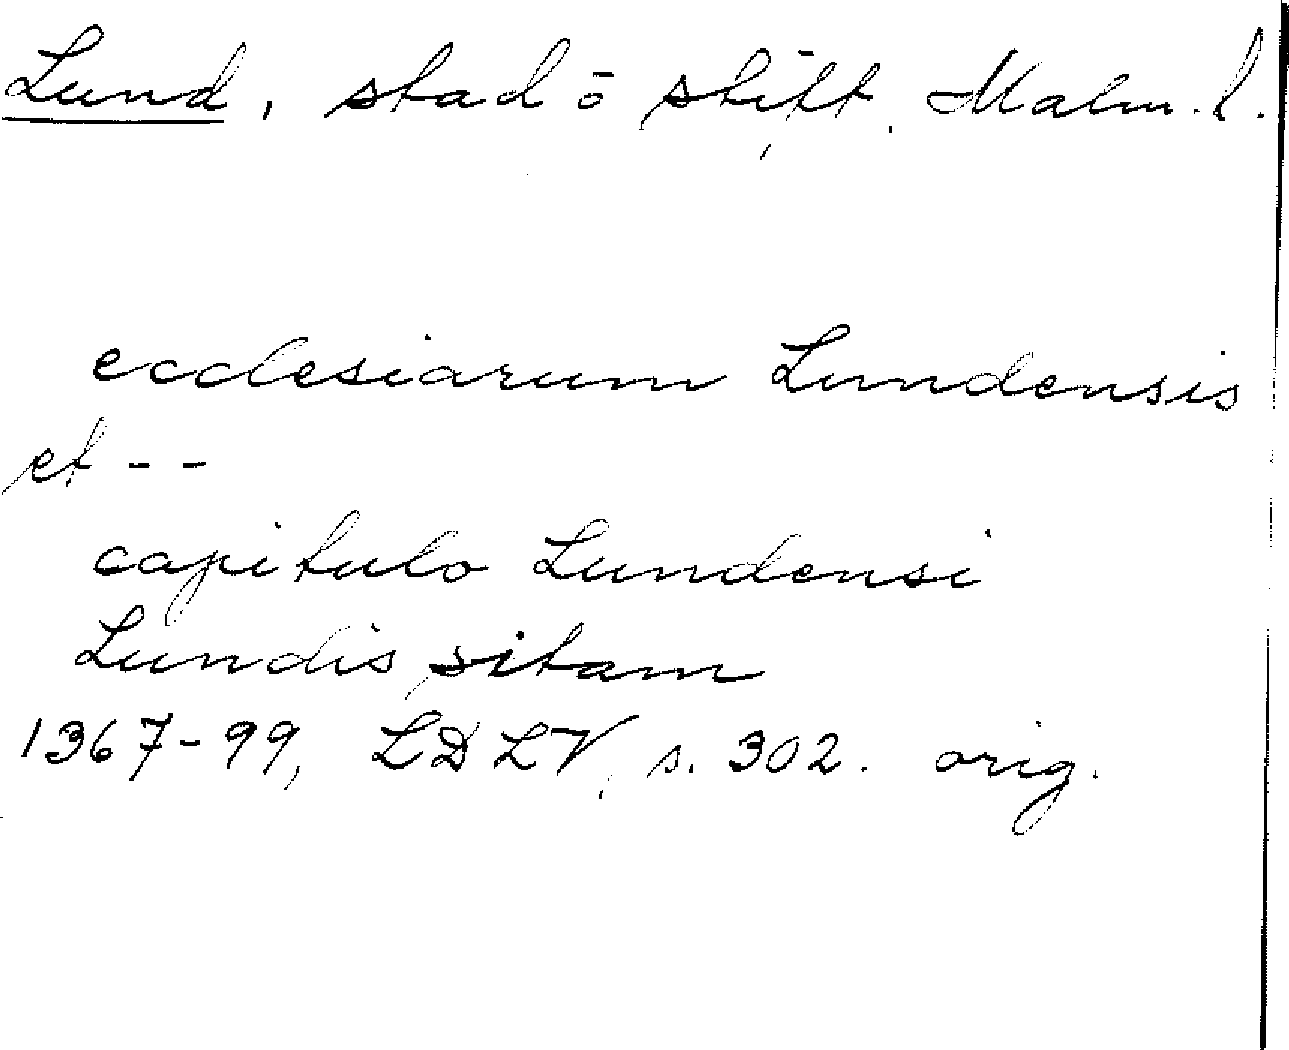 Lund, stad ō stift, Malm. l.
ecclesiarum Lundensis
et - -
capitulo Lundensi
Lundis sitam
1367-99, LDLV, s. 302. orig.